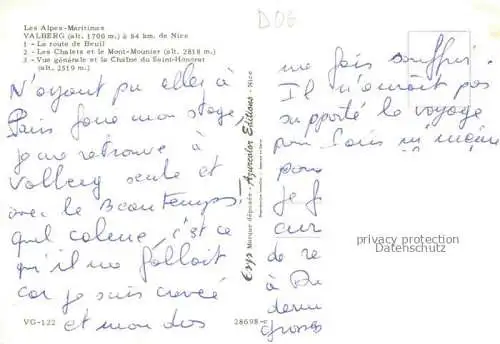 DOG
Les Alpes-Maritimes
VALBERG (alt. 1700 m.) à 84 km. de Nice
1 - La route de Beuil
2 - Les Chalets et le Mont-Mounier (alt. 2818 m.)
3 - Vue générale et la Chaîne du Saint-Honorat
(alt. 2519 m.)
N'ayant pu aller à
Paris faire mon stage,
je me retrouve à
Valberg seule et
avec le Beau temps !
Quel calme, c'est ce
qu'il me fallait
car je suis crevée
et mon dos
VG-122
28698
Esys Marque déposée - Azurcolor Editions - Nice
me fois souffrir.
Il n'aurait pas
supporté le voyage
pour Paris ni même
pour
je f
cur
de re
à
grosses
privacy protection
Datenschutz